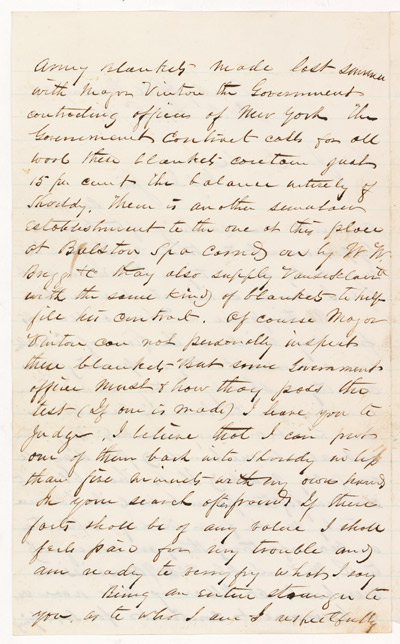 Army Blankets made last summer
with Major Vinton the Government
contracting officer of New York The
Government Contract calls for all
wool these blankets contain just
15 per cent the balance entirely of
Shoddy. There is another similar
establishment to the one at this place
at Balston Spa carried on by W W
Brggs & C they also supply
with the same kind of blankets to help
fill his contract. Of course Major
Vinton can not personally inspect
these blankets But some Government
officer must & how they pass the
test (If one is made) I leave you to
Judge. I believe that I can put
one of them back into Shoddy in less
than five minuets with my own hands
In your search after fraud If these
facts shall be of any value I shall
feele paid for my trouble and
am ready to verryfy what I say
Being an entire stranger to
you, as to who I am I respectfully